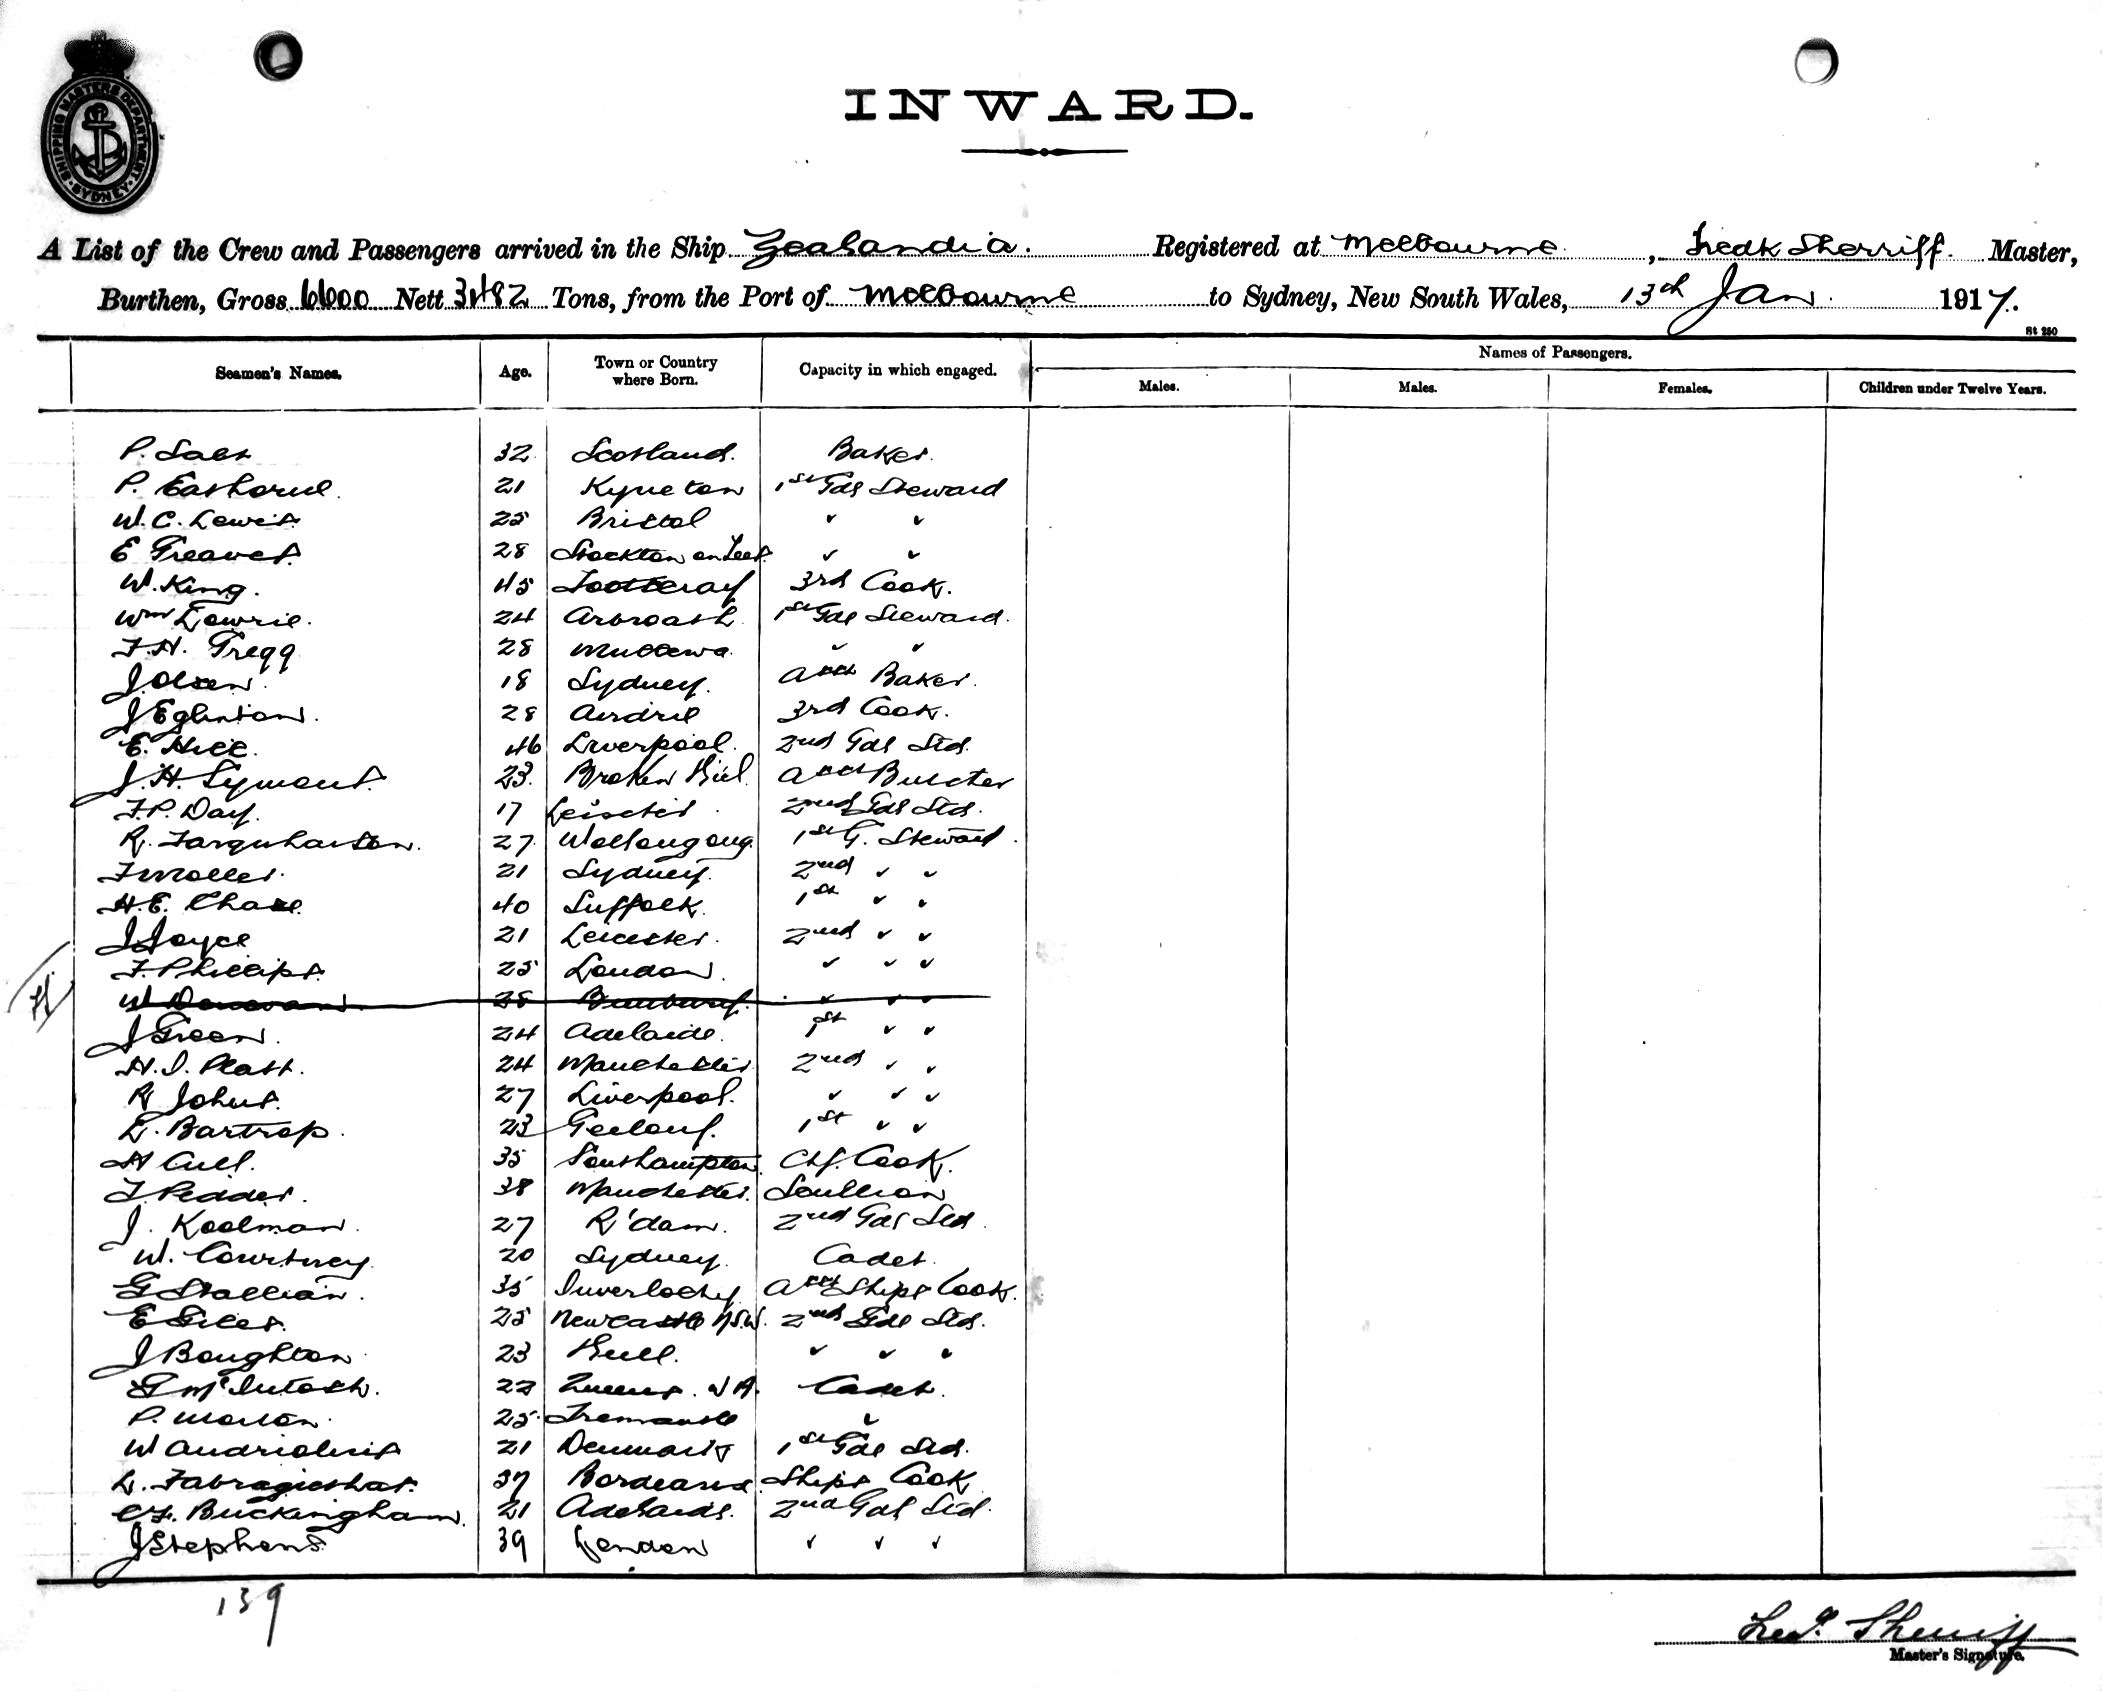 SHIPPING MASTERS DEPARTMENT SYDNEY
INWARD.
A List of the Crew and Passengers arrived in the Ship Zealandia. Registered at Melbourne, Fredk Sherriff. Master,
Burthen, Gross 6600 Nett 3482 Tons, from the Port of Melbourne to Sydney, New South Wales, 13th Jan. 1917.
St 250
Seamen's Names. Age. Town or Country where Born. Capacity in which engaged. Names of Passengers.
Males. Males. Females. Children under Twelve Years.
P. Salt 32 Scotland. Baker.
P. 21 Kyneton 1st Gds Steward
W. C. Lewis 25 Bristol " "
E Greaves. 28 Stockton on Tees. " "
W. King. 45 Footscray 3rd Cook.
Wm Lowrie. 24 Arbroath 1st Gde Steward.
F. H. Gregg 28 Mullewa " "
J. Olsen. 18 Sydney. Asst Baker.
J Eglinton. 28 Airdrie 3rd Cook.
E. Hill. 46 Liverpool. 2nd Gds Std.
J. H. Symons. 23. Broken Hill. Asst Butcher
F. P. Day. 17 2nd Gds Std.
R. Farquharson. 27 Wollongong. 1st G. Steward.
F Moller. 21 Sydney. 2nd " "
H. E. Chase 40 Suffolk. 1st " "
J Joyce 21 Leicester. 2nd " "
F. Phillips. 25 London. " " "
H
W Donovan. 28 Bunbury. " " "
J Green. 24 Adelaide. 1st " "
H. I. Platt. 24 Manchester 2nd " "
R Johns. 27 Liverpool. " " "
L. Bartrop. 23 Geelong. 1st " "
H Cull. 35 Southampton. Chf. Cook.
F. Pedder. 38 Manchester. Scullion
J. Koolman. 27 R'dam. 2nd Gds Std.
W. Courtney. 20 Sydney. Cadet.
G Stallian. 35 Inverlochy Asst Ships Cook.
E Giles. 25 Newcastle NSW. 2nd Gde Std.
J Boughton. 23 Hull. " " "
G McIntosh. 22 Cadet.
P. Morton. 25. Fremantle "
W 21 Denmark 1st Gde Std.
L. 37 Bordeaux Ships Cook
C. F. Buckingham. 21 Adelaide. 2nd Gds Std.
J Stephens. 39 London " " "
139
Fred. Sherriff
Master's Signature.